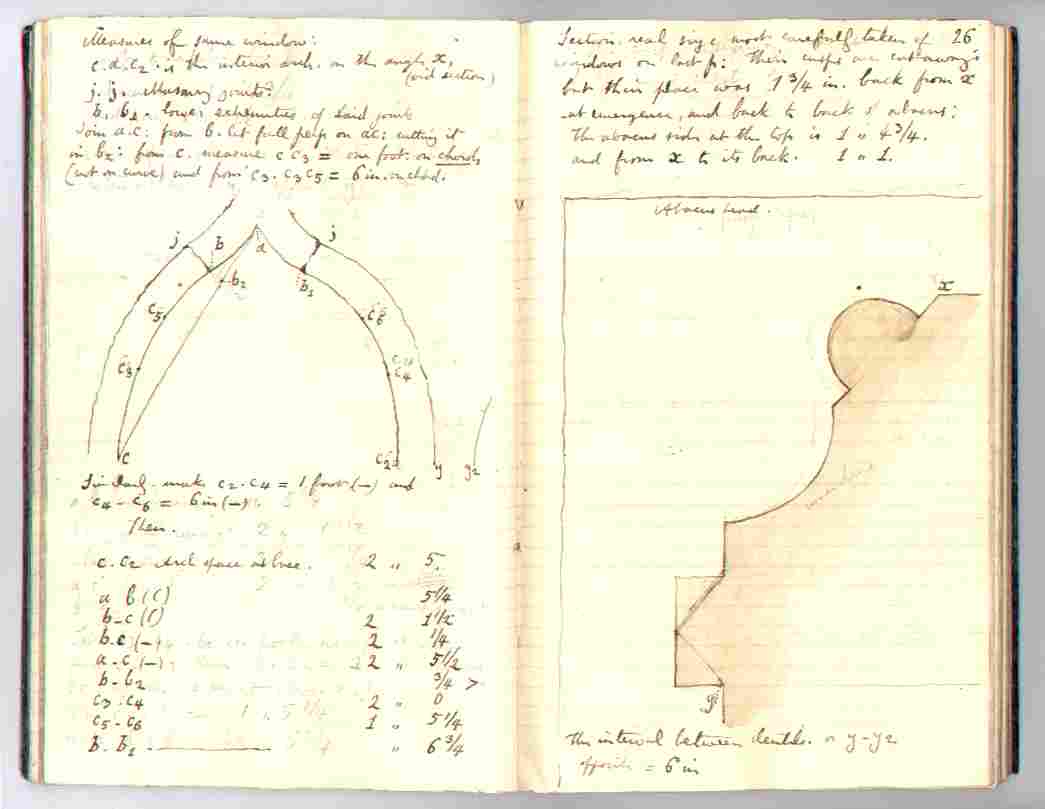 Measures of same window:
c. d. c2. is the interior arch. on the angle x,
(vid section)
j. j. Masonry joints.
b, b1. lower extremities of said joint
Join a.c: from b. let fall perp on ac: cutting it
in b2: from c. measure c c3 = one foot. on chord,
(not on curve) and from c3. c3 c5 = 6 in. on chord.
j b a j
b2 b1
c5 c6
c3 c4
c c2 y y2
Similarly make c2. c4 = 1 foot (—) and
c4 - c6 = 6 in (—).
Then.
c. c2 Arch space at base. 2 " 5.
a b (() 5 1/4
b-c (() 2 1 1/2
b.c (—) 2 1/4
a-c (—) 2 " 5 1/2
b-b2 3/4 >
c3. c4 2 " 0
c5-c6 1 " 5 1/4
b. b1 " 6 3/4
Section, real size most carefully taken of 26
windows on last p: their cusps are cut away;
but their place was 1 3/4 in. back from x
at emergence, and back to back of abacus;
The abacus side at the top is 1 " 4 3/4.
and from x to its back. 1 " 1.
Abacus level.
x
y
The interval between dentils. or y-y2
opposite = 6 in